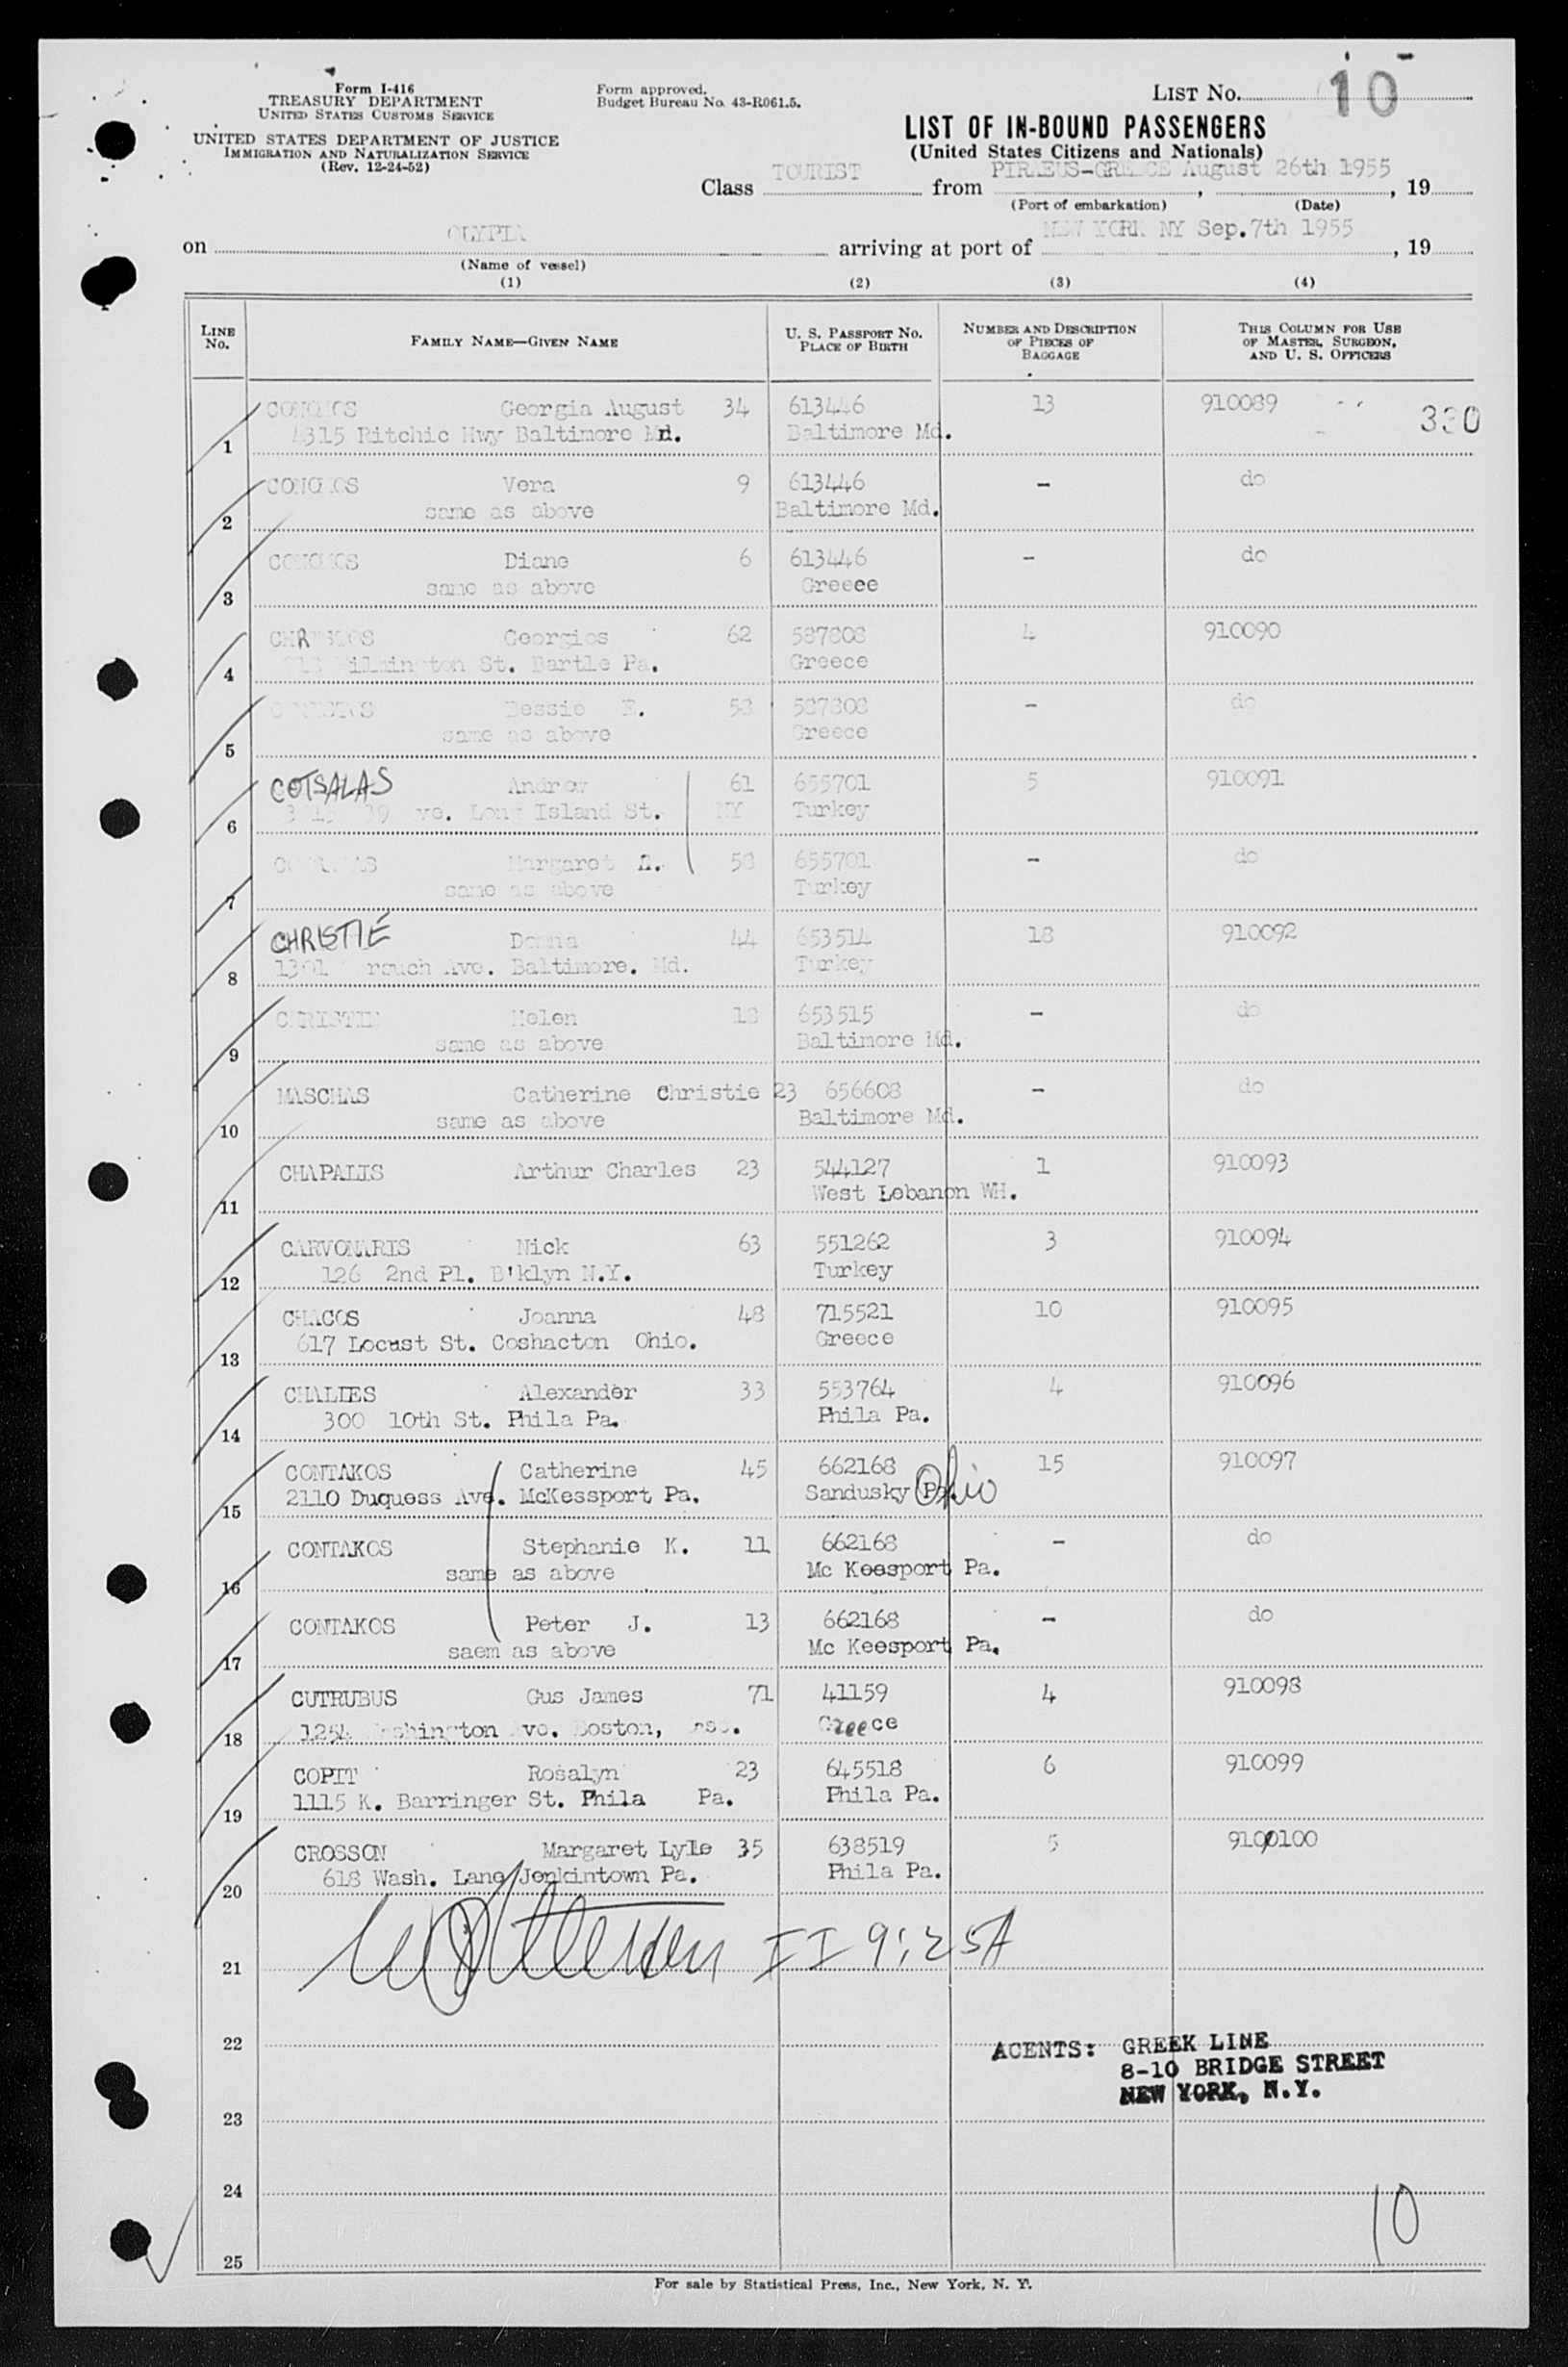 Form I-416
TREASURY DEPARTMENT
UNITED STATES CUSTOMS SERVICE
UNITED STATES DEPARTMENT OF JUSTICE
IMMIGRATION AND NATURALIZATION SERVICE
(Rev. 12-24-52)
Form approved.
Budget Bureau No. 43-R061.5.
LIST No. 10
LIST OF IN-BOUND PASSENGERS
(United States Citizens and Nationals)
Class TOURIST from PIRAEUS-GREECE August 26th 1955, 19
(Port of embarkation) (Date)
on arriving at port of NEW YORK NY Sep.7th 1955, 19
(Name of vessel)
(1) (2) (3) (4)
LINE No. FAMILY NAME—GIVEN NAME U. S. PASSPORT NO. PLACE OF BIRTH NUMBER AND DESCRIPTION OF PIECES OF BAGGAGE THIS COLUMN FOR USE OF MASTER, SURGEON, AND U. S. OFFICERS
Georgia August 34 613446 13 910089 330
1 4315 Ritchic Hwy Baltimore Md. Baltimore Md.
Vera 9 613446 - do
2 same as above Baltimore Md.
Diane 6 613446 - do
3 same as above Greeee
Georgios 62 587808 4 910090
4 St. Pa. Greece
Bessie 58 587808 - do
5 same as above Greece
COTSALAS Andrew 61 655701 5 910091
6 Long Island St. NY Turkey
Margaret 58 655701 - do
7 same as above Turkey
CHRISTIE 44 653514 18 910092
8 Ave. Baltimore. Md. Turkey
CHRISTIE Helen 18 653515 - do
9 same as above Baltimore Md.
MASCHAS Catherine Christie 23 656608 - do
10 same as above Baltimore Md.
CHAPALIS Arthur Charles 23 544127 1 910093
11 West Lebanon WH.
CARVONARIS Nick 63 551262 3 910094
12 126 2nd Pl. B'klyn N.Y. Turkey
CHACOS Joanna 48 715521 10 910095
13 617 Locust St. Coshacton Ohio. Greece
CHALIES Alexander 33 553764 4 910096
14 300 10th St. Phila Pa. Phila Pa.
CONTAKOS Catherine 45 662168 15 910097
15 2110 Duquess Ave. McKessport Pa. Sandusky Ohio
CONTAKOS Stephanie K. 11 662168 - do
16 same as above Mc Keesport Pa.
CONTAKOS Peter J. 13 662168 - do
17 saem as above Mc Keesport Pa.
CUTRUBUS Gus James 71 41159 4 910098
18 1254 Washington Ave. Boston, Greece
COPIT Rosalyn 23 645518 6 910099
19 1115 K. Barringer St. Phila Pa. Phila Pa.
CROSSON Margaret Lyle 35 638519 5 9100100
20 618 Wash. Lane Jenkintown Pa. Phila Pa.
21 II 9:25A
22
AGENTS: GREEK LINE
8-10 BRIDGE STREET
NEW YORK, N.Y.
23
24
10
25
For sale by Statistical Press, Inc., New York, N. Y.